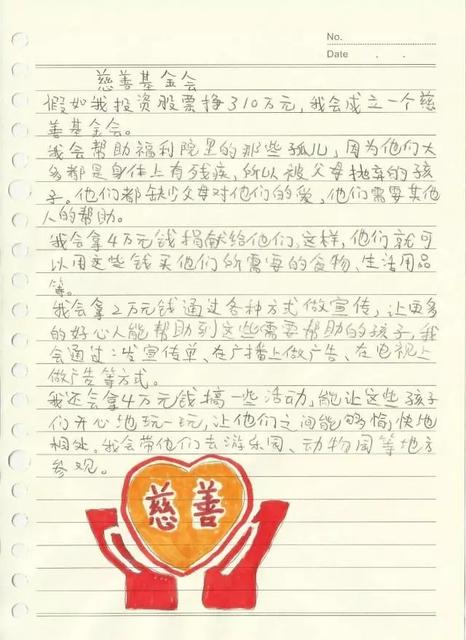 No.
Date . .
慈善基金会
假如我投资股票挣了10万元，我会成立一个慈
善基金会。
我会帮助福利院里的那些孤儿，因为他们大
多都是身体上有残疾，所以被父母抛弃的孩
子。他们都缺少父母对他们的爱，他们需要其他
人的帮助。
我会拿4万元钱捐献给他们，这样，他们就可
以用这些钱买他们所需要的食物、生活用品
等。
我会拿2万元钱通过各种方式做宣传，让更多
的好心人能帮助到这些需要帮助的孩子，我
会通过：发宣传单、在广播上做广告、在电视上
做广告等方式。
我还会拿4万元钱搞一些活动，能让这些孩子
们开心地玩一玩，让他们之间能够愉快地
相处。我会带他们去游乐园、动物园等地方
参观。
慈善